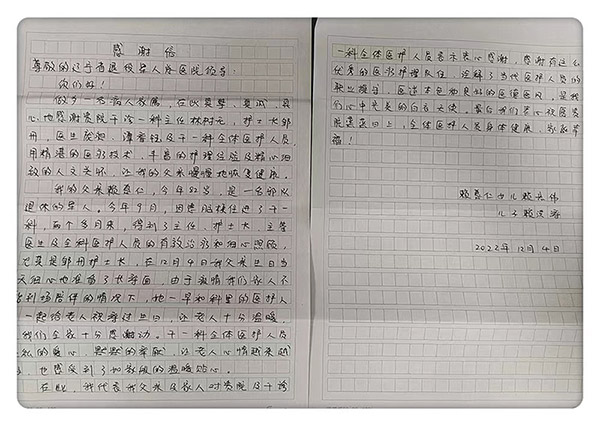 感谢信
尊敬的辽宁省退役军人总医院领导：
你们好！
做为一名病人家属，在此真挚、真诚、真
心地感谢贵院干诊一科主任林时元，护士长邹
丹，医生庞聪、潭香钰及干一科全体医护人员
用精湛的医疗技术、丰富的护理经验及精心细
致的人文关怀，让我的父亲慢慢地恢复健康。
我的父亲赖真仁，今年82岁，是一名部队
退休的军人。今年9月，因患脑梗住进了干一
科，两个多月来，得到了主任、护士长、主管
医生及全科医护人员的有效治疗和细心照顾，
尤其是邹丹护士长，在12月4日我父亲生日当
天细心地准备了长寿面，由于疫情我们家人不
能到场陪伴的情况下，她一早和科里的医护人
一起给老人祝寿过生日，让老人十分温暖，
我们全家十分感谢动。干一科全体医护人员
无私的爱心，默默的奉献，让老人心情越来越
，也感受到了如家般的温暖贴心。
在此，我代表我父亲及家人对贵院及干诊
一科全体医护人员表示衷心感谢，感谢有这么
优秀的医疗护理队伍，诠释了当代医护人员的
职业操守，医者本色和良好的医德医风，是我
们心中完美的白衣天使。最后我们衷心祝医贵
院蒸蒸日上，全体医护人员身体健康，家家幸
福！
赖真仁女儿 赖天伟
儿子 赖洪海
2022年12月4日